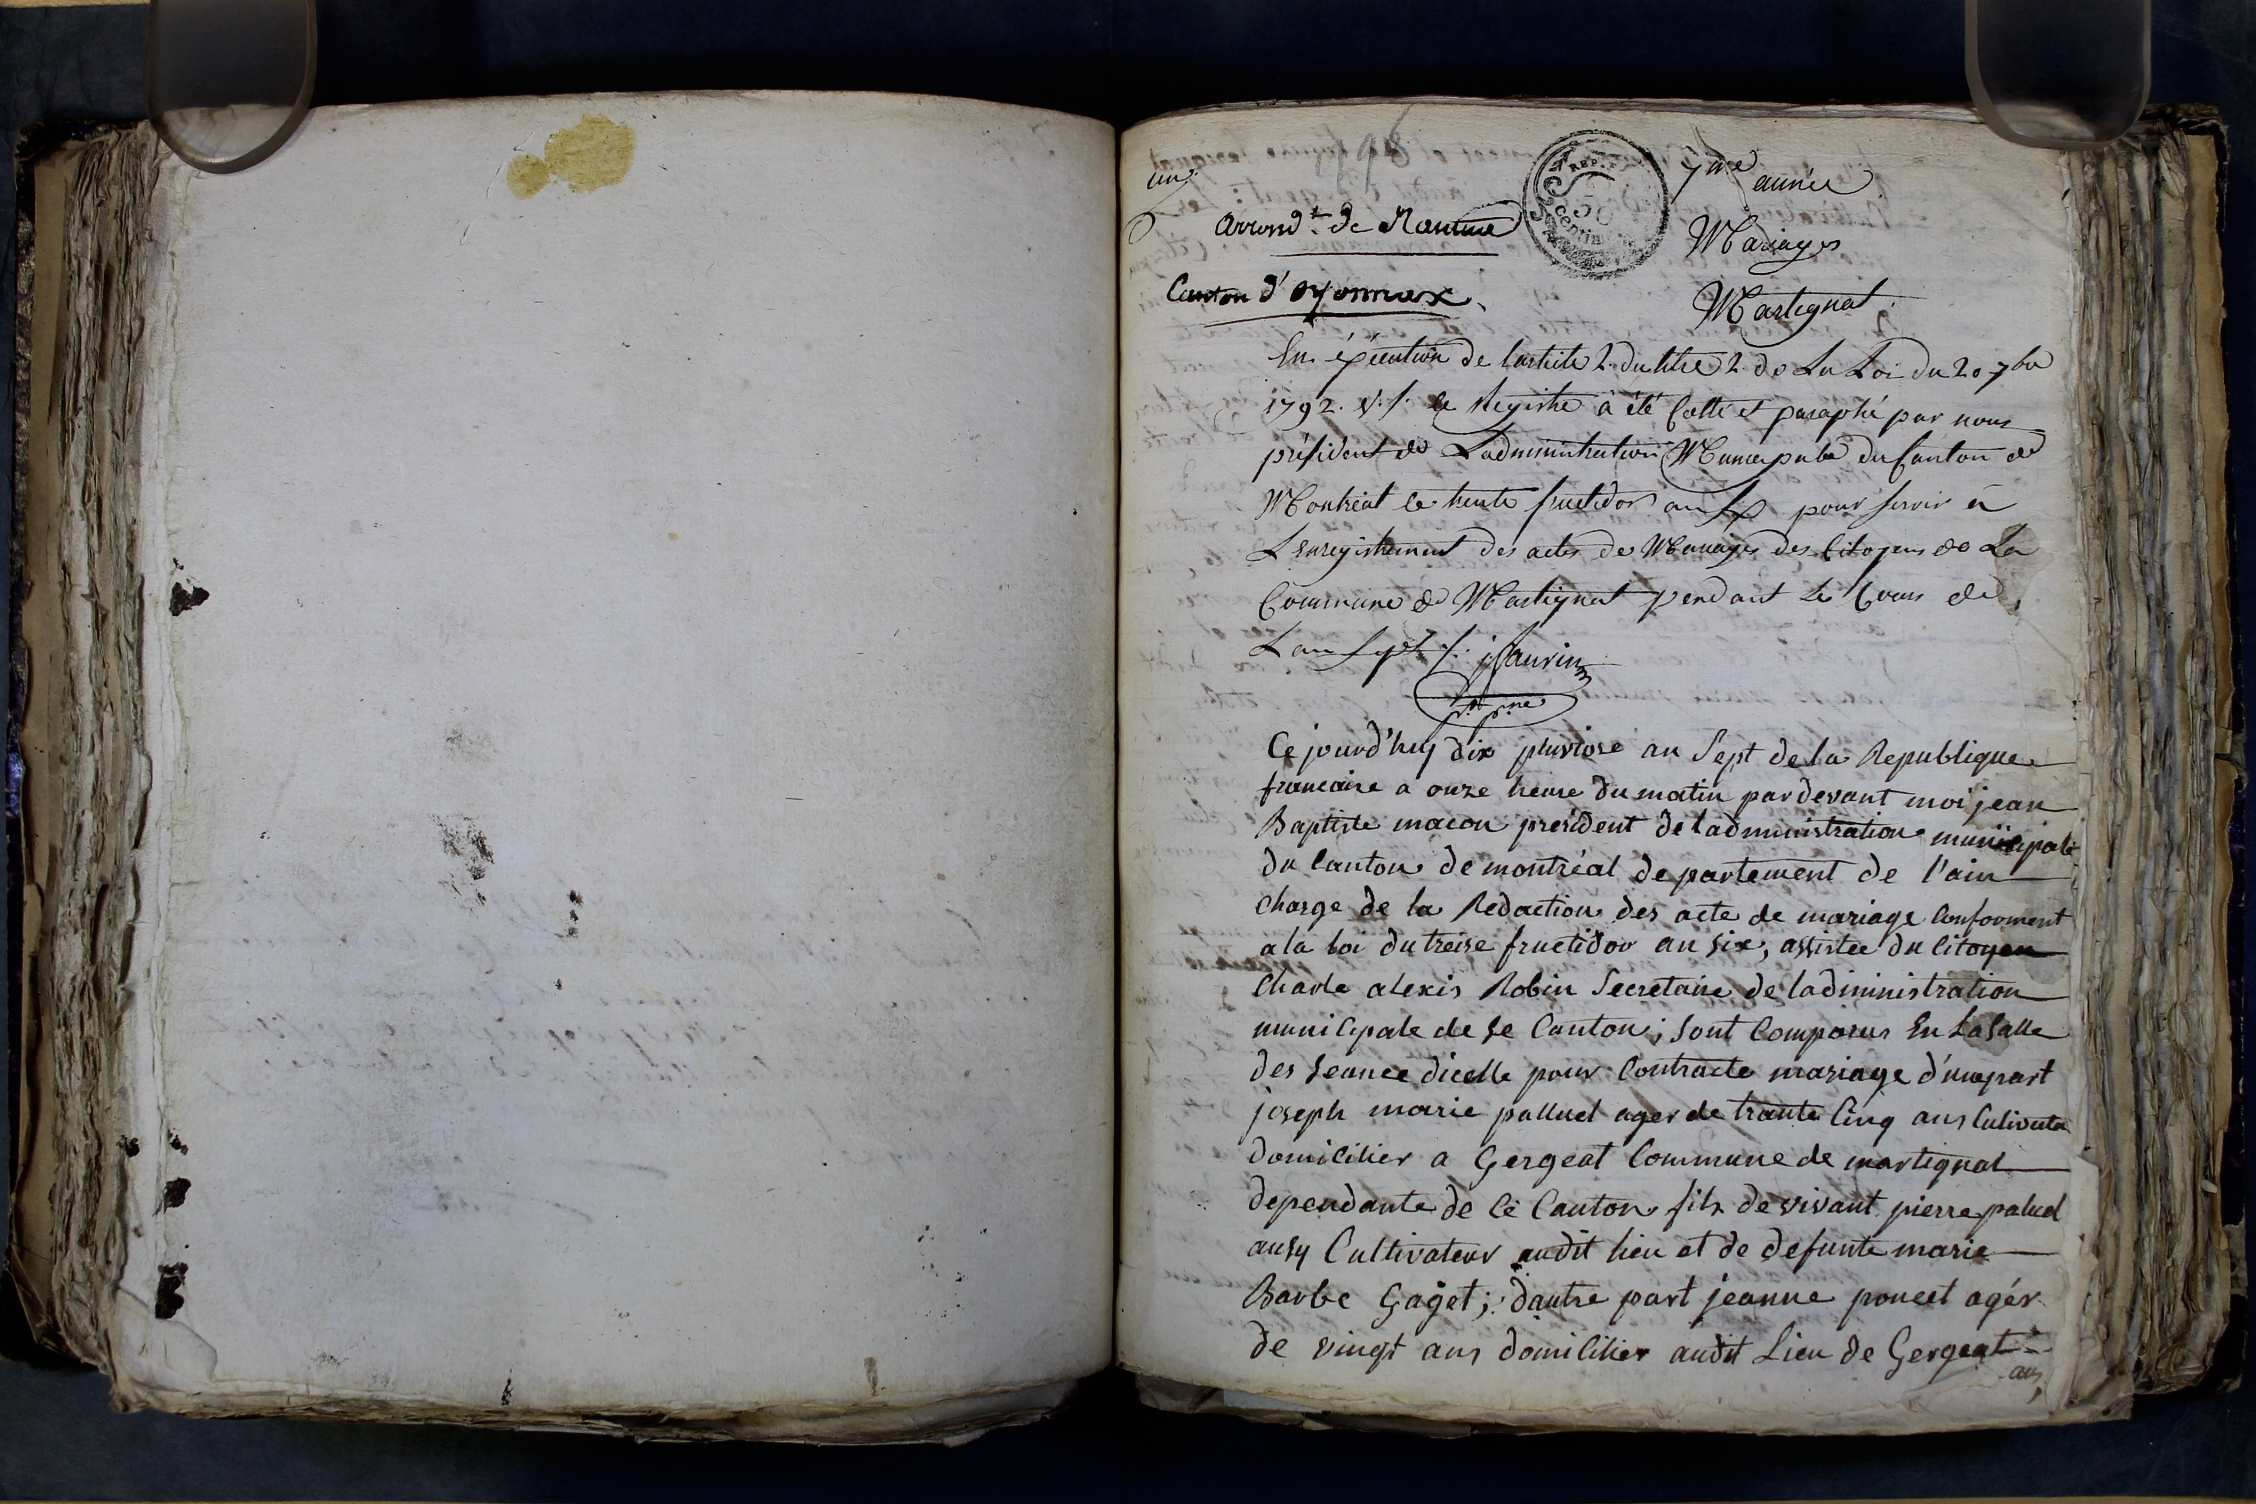 un
96
REP. F.
50
centim
7me année
Arrondt. de Nantua
Mariages
Canton d'Oyonnax
Martignat
En éxécution de l'article 2. du titre 2 de La Loi du 20 7bre
1792. V.S. le Registre à été Cotté et paraphé par nous
président de L'administration Municipale du Canton de
Montréal le trente fructidor an six pour servir à
L'Enregistrement des actes de Mariages des Citoyens de La
Commune de Martignat pendant le Cours de
L'an sept
Ce jourd'huy dix pluviose an Sept de la Republique
francaise a onze heure du matin par devant moi jean
Baptiste macon president de l'administration municipale
du Canton de montréal departement de l'ain
Charge de la Redaction des acte de mariage Conforment
a la loi du treise fructidor an six, assistee du Citoyen
Charle alexis Robin Secretaire de ladininistration
municipale de se Canton; sont Comparus En La Salle
des Seance dicelle pour Contracte mariage d'une part
joseph marie palluel ager de trante Cinq ans Cultivate
domicilier a Gergeat Commune de martignat
dependante de ce Canton fils de vivant pierre paluel
ausy Cultivateur audit lieu et de defunte marie
Barbe Gaget; d'autre part jeanne poncet agér
de vingt ans domicilier audit Lieu de Gergeat